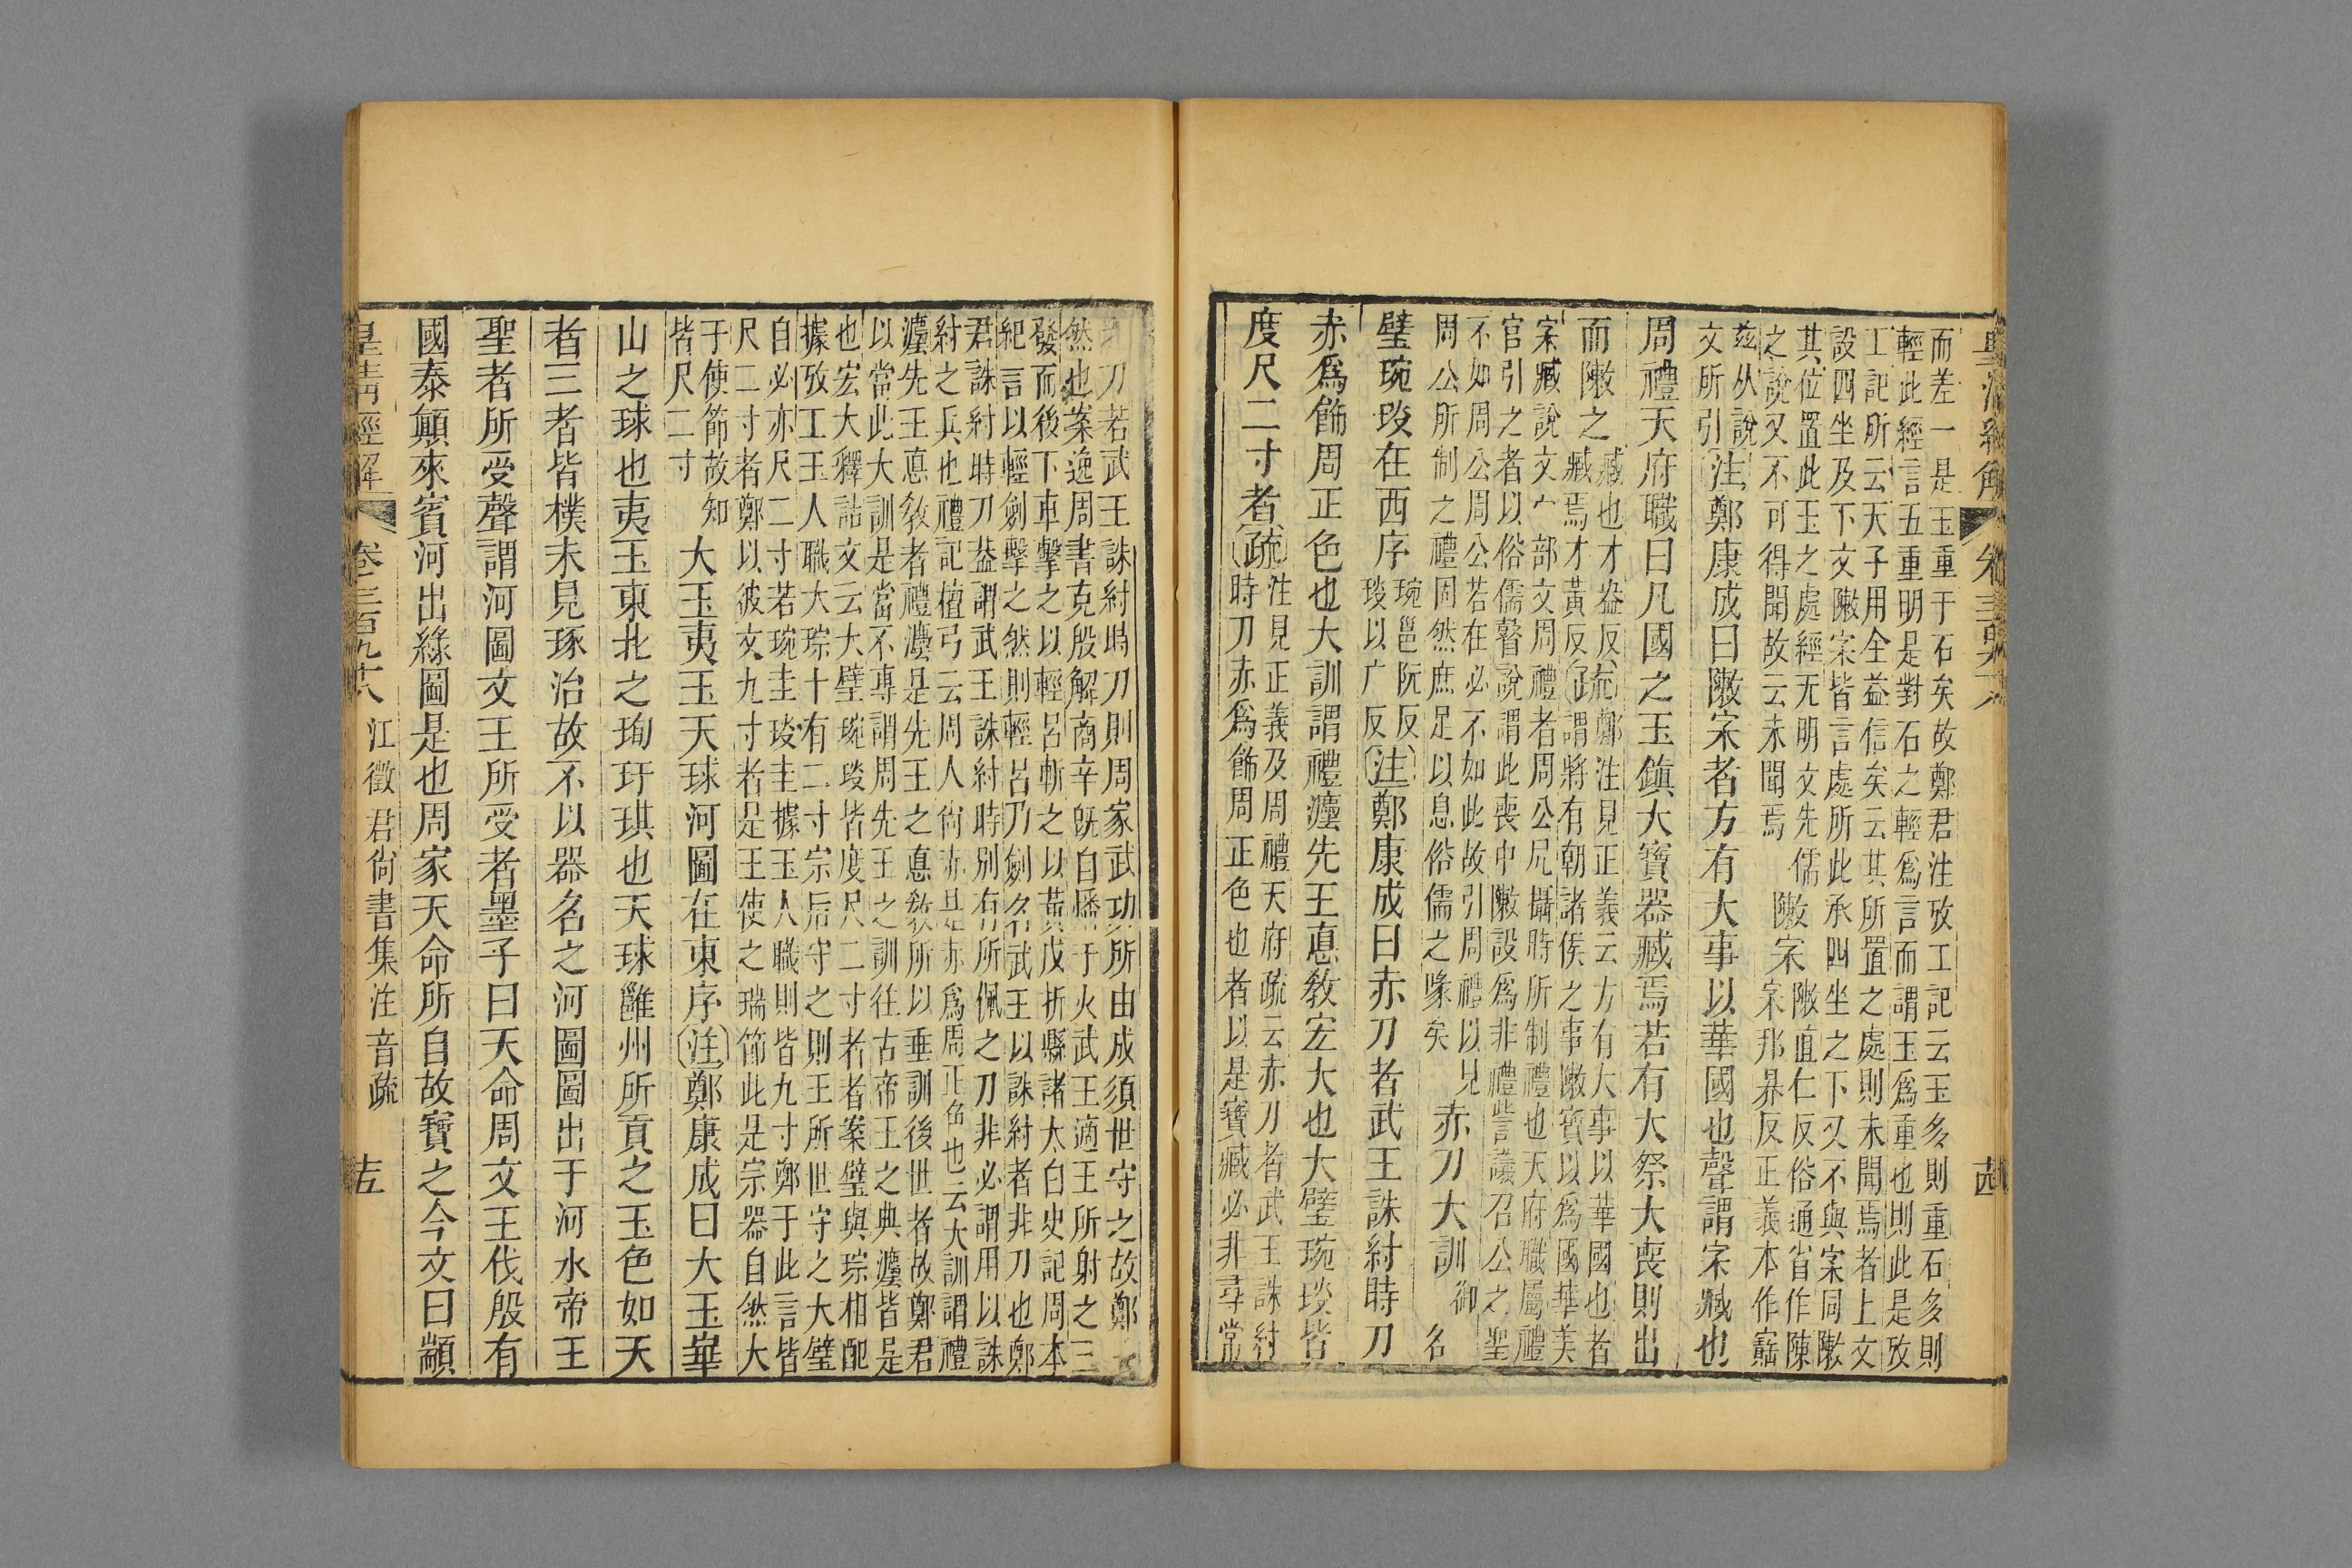 而差一是玉重于石矣故鄭君注攷工記云玉多則重石多則
輕此經言五重明是對石之輕爲言而謂玉爲重也則此是攷
工記所云天子用全益信矣云其所置之處則未聞焉者上文
設四坐及下文陳宲皆言處所此承四坐之下又不與宲同陳
其位置此玉之處經无明文先儒
之說又不可得聞故云未聞焉
陳宲
陳直仁反俗通省作陳
宲邦昇反正義本作寶
茲从說
文所引
注鄭康成曰陳宲者方有大事以華國也聲謂宲臧也
周禮天府職曰凡國之玉鎮大寶器臧焉若有大祭大喪則出
而陳之
臧也才盎反
臧焉才黃反
疏鄭注見正義云方有大事以華國也者
謂將有朝諸侯之事陳寶以爲國華美
宲臧說文宀部文周禮者周公凥攝時所制禮也天府職屬禮
官引之者以俗儒瞽說謂此喪中陳設爲非禮訾議召公之聖
不如周公周公若在必不如此故引周禮以見
周公所制之禮固然庶足以息俗儒之喙矣
赤刀大訓
御名
璧琬琰在西序
琬邕阮反
琰以广反
注鄭康成曰赤刀者武王誅紂時刀
赤爲飾周正色也大訓謂禮灋先王悳敎宏大也大璧琬琰皆
度尺二寸者疏
注見正義及周禮天府疏云赤刀者武王誅紂
時刀赤爲飾周正色也者以是寶臧必非尋常
之刀若武王誅紂時刀則周家武功所由成須世守之故鄭
然也案逸周書克殷解商辛旣自燔于火武王適王所射之三
發而後下車擊之以輕呂斬之以黃戉折縣諸太白史記周本
紀言以輕劍擊之然則輕呂乃劍名武王以誅紂者非刀也鄭
君誅紂時刀葢謂武王誅紂時別有所佩之刀非必謂用以誅
紂之兵也禮記檀弓云周人尙赤是赤爲周正色也云大訓謂禮
灋先王悳敎者禮灋是先王之悳敎所以垂訓後世者故鄭君
以當此大訓是當不專謂周先王之訓往古帝王之典灋皆是
也宏大釋詁文云大璧琬琰皆度尺二寸者者案璧與琮相配
據攷工玉人職大琮十有二寸宗后守之則王所世守之大璧
自必亦尺二寸若琬圭琰圭據玉人職則皆九寸鄭于此言皆
尺二寸者鄭以彼文九寸者是王使之瑞節此是宗器自然大
于使節故知
皆尺二寸
大玉夷玉天球河圖在東序注鄭康成曰大玉崋
山之球也夷玉東北之珣玗琪也天球雝州所貢之玉色如天
者三者皆樸未見琢治故不以器名之河圖圖出于河水帝王
聖者所受聲謂河圖文王所受者墨子曰天命周文王伐殷有
國泰顚來賓河出綠圖是也周家天命所自故寶之今文曰顓
皇清經解
卷三百九十八
江徵君尙書集注音疏